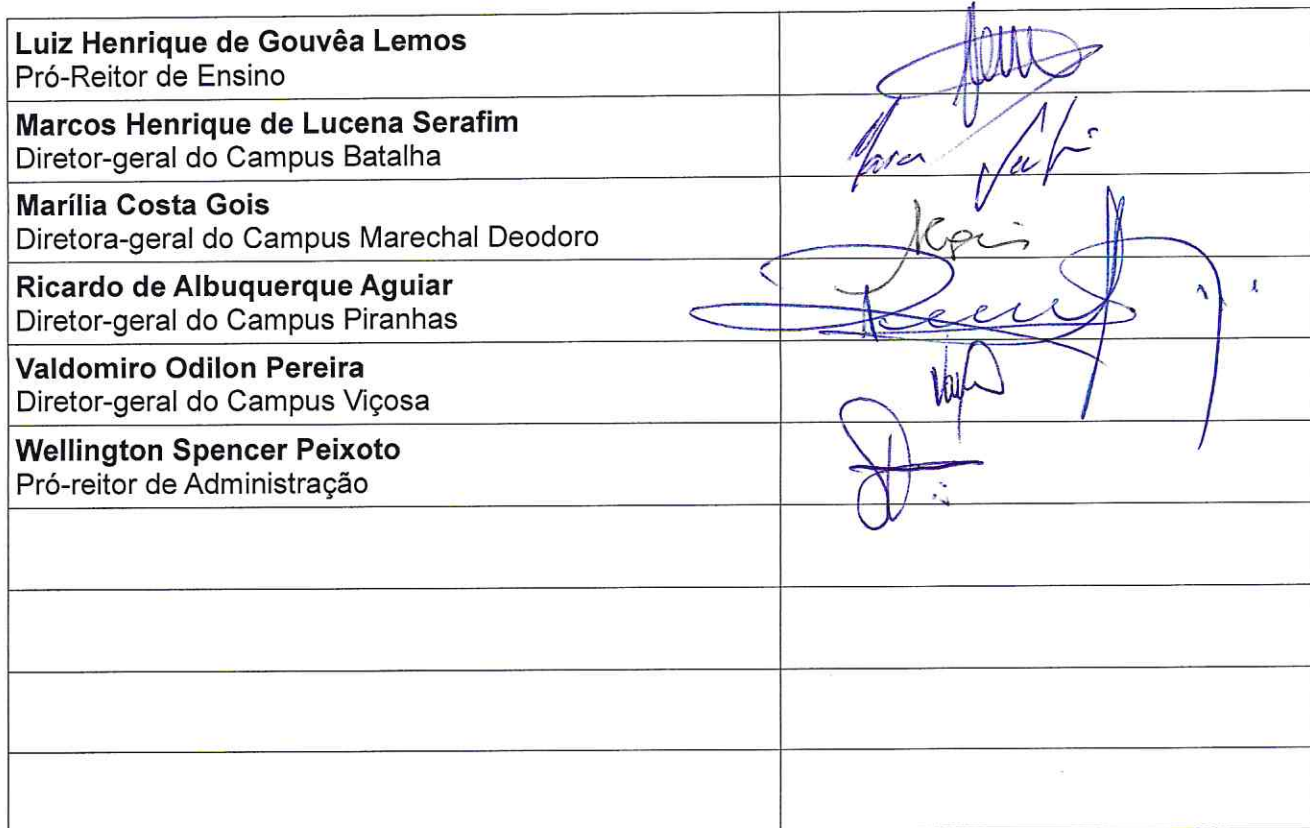 Luiz Henrique de Gouvêa Lemos
Pró-Reitor de Ensino
Marcos Henrique de Lucena Serafim
Diretor-geral do Campus Batalha
Marília Costa Gois
Diretora-geral do Campus Marechal Deodoro
Ricardo de Albuquerque Aguiar
Diretor-geral do Campus Piranhas
Valdomiro Odilon Pereira
Diretor-geral do Campus Viçosa
Wellington Spencer Peixoto
Pró-reitor de Administração